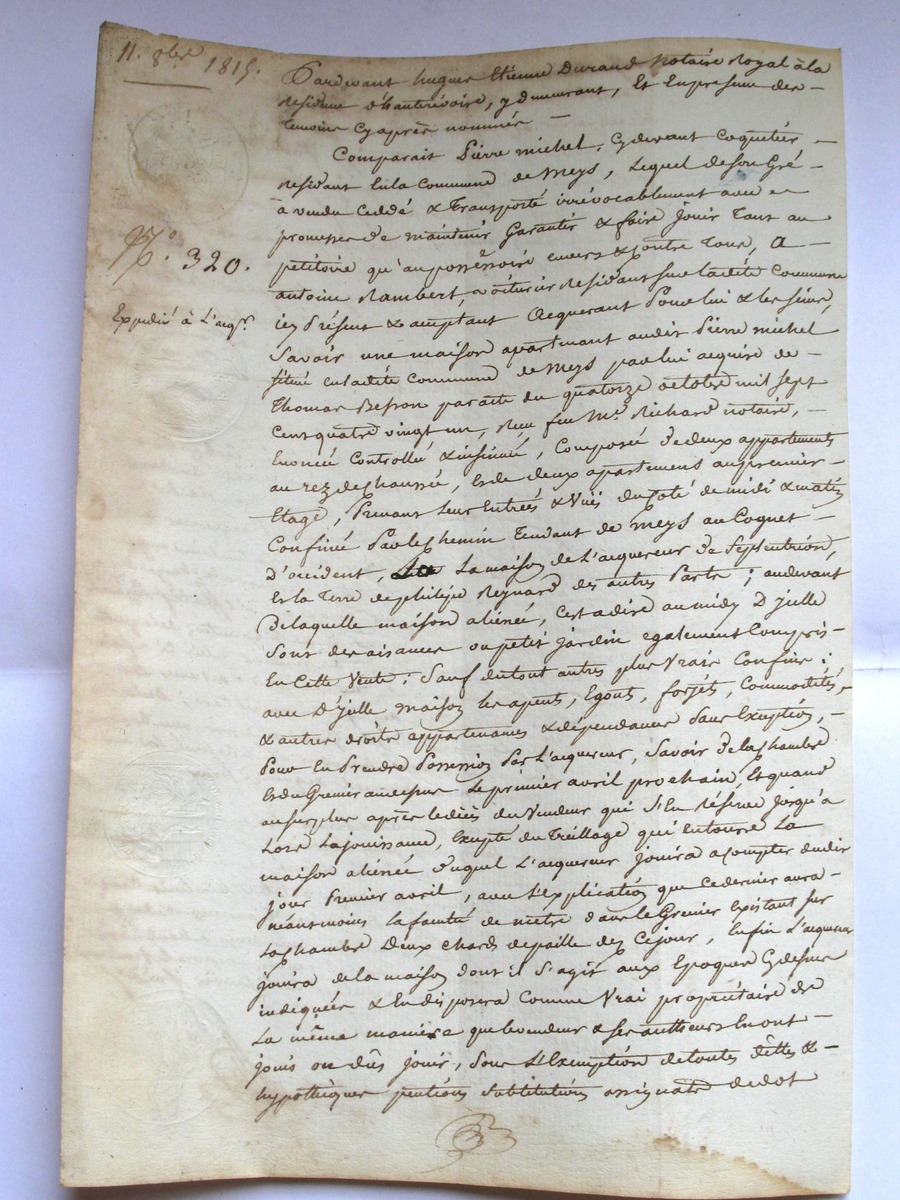 11. 8bre 1815.
N.° 320.
Expédié à L'acqr.
Pardevant hugues Etienne Durand Notaire Royal à la
Residence d'hauterivoire, y demeurant, Et En presence des
témoins Cyaprès nommés
Comparait Pierre michel, Cydevant Coquetier
Residant En la Commune de Meys, Lequel de son Gré
à vendu Ceddé & Transporté irrévocablement avec
promesse de maintenir Garantir & faire jouir Tant au
petitoire qu'au possessoire envers & Contre Tous, A
antoine Rambert, voiturier Residant sur ladite Commune
icy Présent & acceptant Acquerant Pour lui & les siens,
Savoir une maison apartenant audit Pierre michel
située en ladite Commune de Meys par lui acquise de
Thomas Besson par acte du quatorze octobre mil sept
Cent quatre vingt un, Reçu feu Me. Richard notaire,
Enoncé Controllé & insinué, Composée de deux appartements
au rez de chaussée, et de deux apartements au premier
Etage, Prenant Leur Entrées & Vües du Coté de midi & matin
Confinée Par le chemin Tendant de Meys au Coquet
D'occident, La maison de L'acquereur de Septentrion,
Et la Terre de philipe Reynard des autres Parts; audevant
De laquelle maison aliénée, C'est a dire au midy D'jcelle
Sont des aisances ou petit jardin egalement Compris
En Cette Vente; Sauf du tout autres plus Vrais Confins;
avec D'jcelle maison les apents, Egouts, forjets, Commodités,
& autres droits appartenances & dépendances Sans Exception,
Pour En Prendre Possession Par L'acquereur, Savoir de la chambre
Et du Grenier au dessus Le premier avril prochain, Et quand
au surplus après le décès du Vendeur qui S'En réserve jusqu'à
Lors La jouissance, Excepté du Treillage qui entoure La
maison aliénée duquel L'acquereur jouira a compter dudit
jour Premier avril, avec L'explication que Ce dernier aura
néanmoins la faculté de mettre dans le Grenier Existant sur
La chambre Deux chards de paille dez Ce jour, Enfin L'acquereur
jouira de la maison dont il S'agit aux Epoques Cydessus
indiquées & En disposera Comme Vrai propriétaire de
La même maniere que le vendeur & ses autheurs En ont
joui ou dûs jouir, Sous L'Exemption de toutes dettes &
hypothèques pentions Substitutions assignats de dot